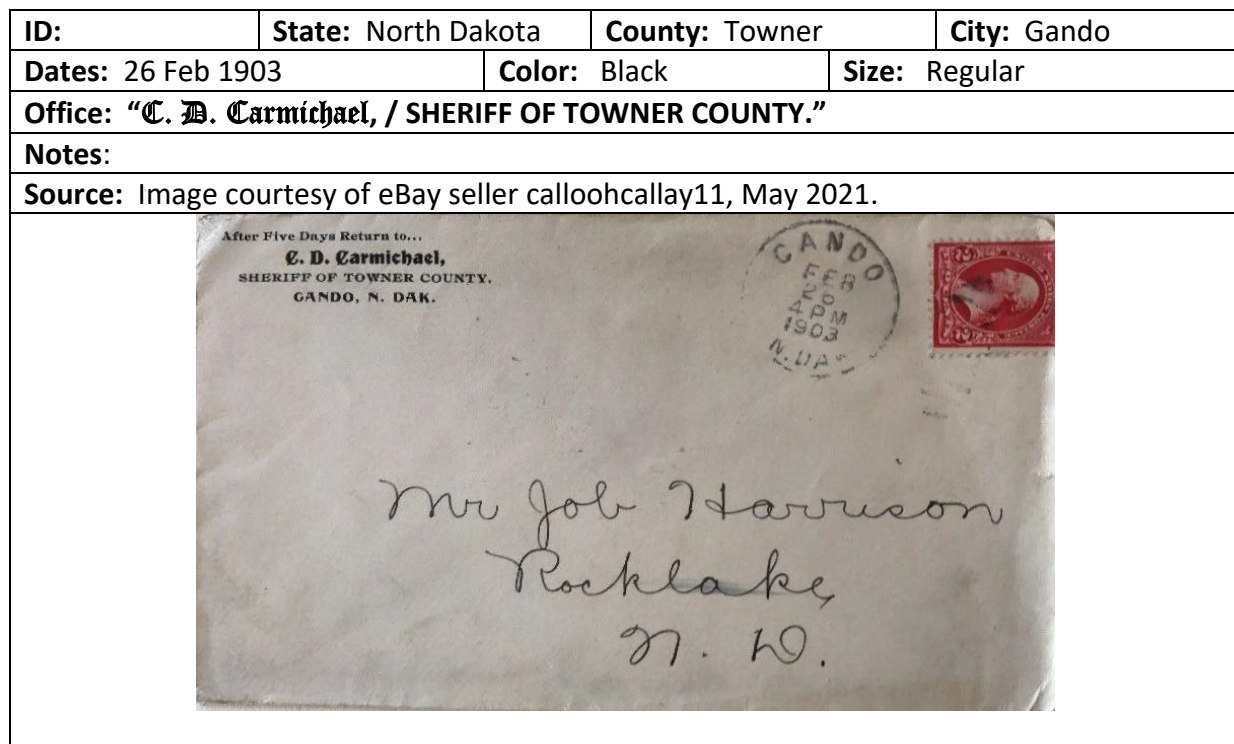 ID: State: North Dakota County: Towner City: Gando
Dates: 26 Feb 1903 Color: Black Size: Regular
Office: “C. D. Carmichael, / SHERIFF OF TOWNER COUNTY.”
Notes:
Source: Image courtesy of eBay seller calloohcallay11, May 2021.
After Five Days Return to...
C. D. Carmichael,
SHERIFF OF TOWNER COUNTY.
GANDO, N. DAK.
CANDO
FEB
26
4 PM
1903
N. DAK
Mr Job Harrison
Rocklake,
N. D.